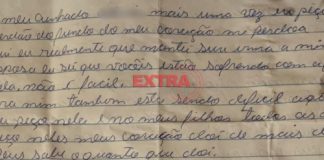 meu cunhado mais uma vez eu peço
do fundo do meu coração me perdoa
eu realmente que matei sua uma a mi
esposa eu sei que vocês estão sofrendo com
não é facil
EXTRA
mim tambem esta sendo dificil
peço neles e nos meus filhos todos os
neles meu coração doai de mais
Deus sabe o quanto que doi.